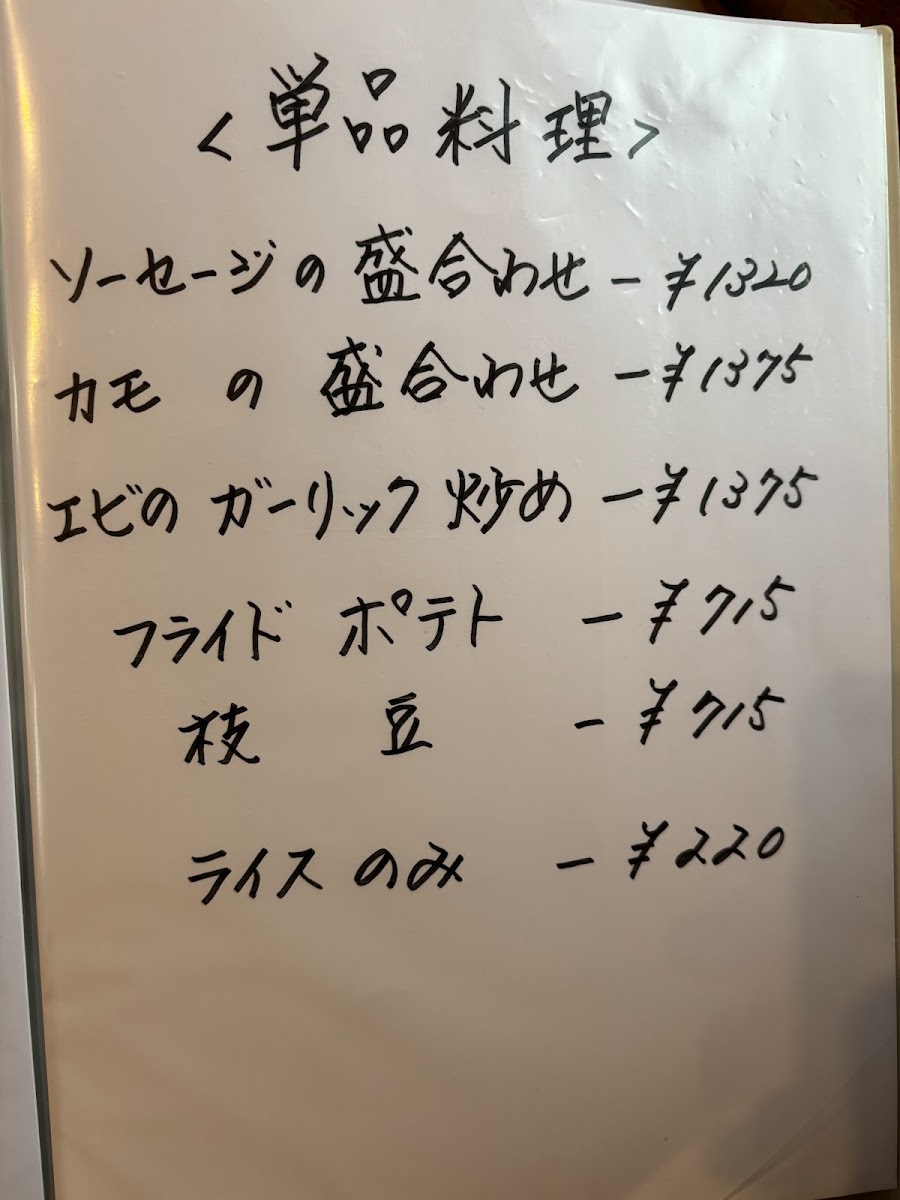 <単品料理>
ソーセージの盛合わせ-¥1320
カモの盛合わせ-¥1375
エビのガーリック炒め-¥1375
フライドポテト-¥715
枝豆-¥715
ライスのみ-¥220